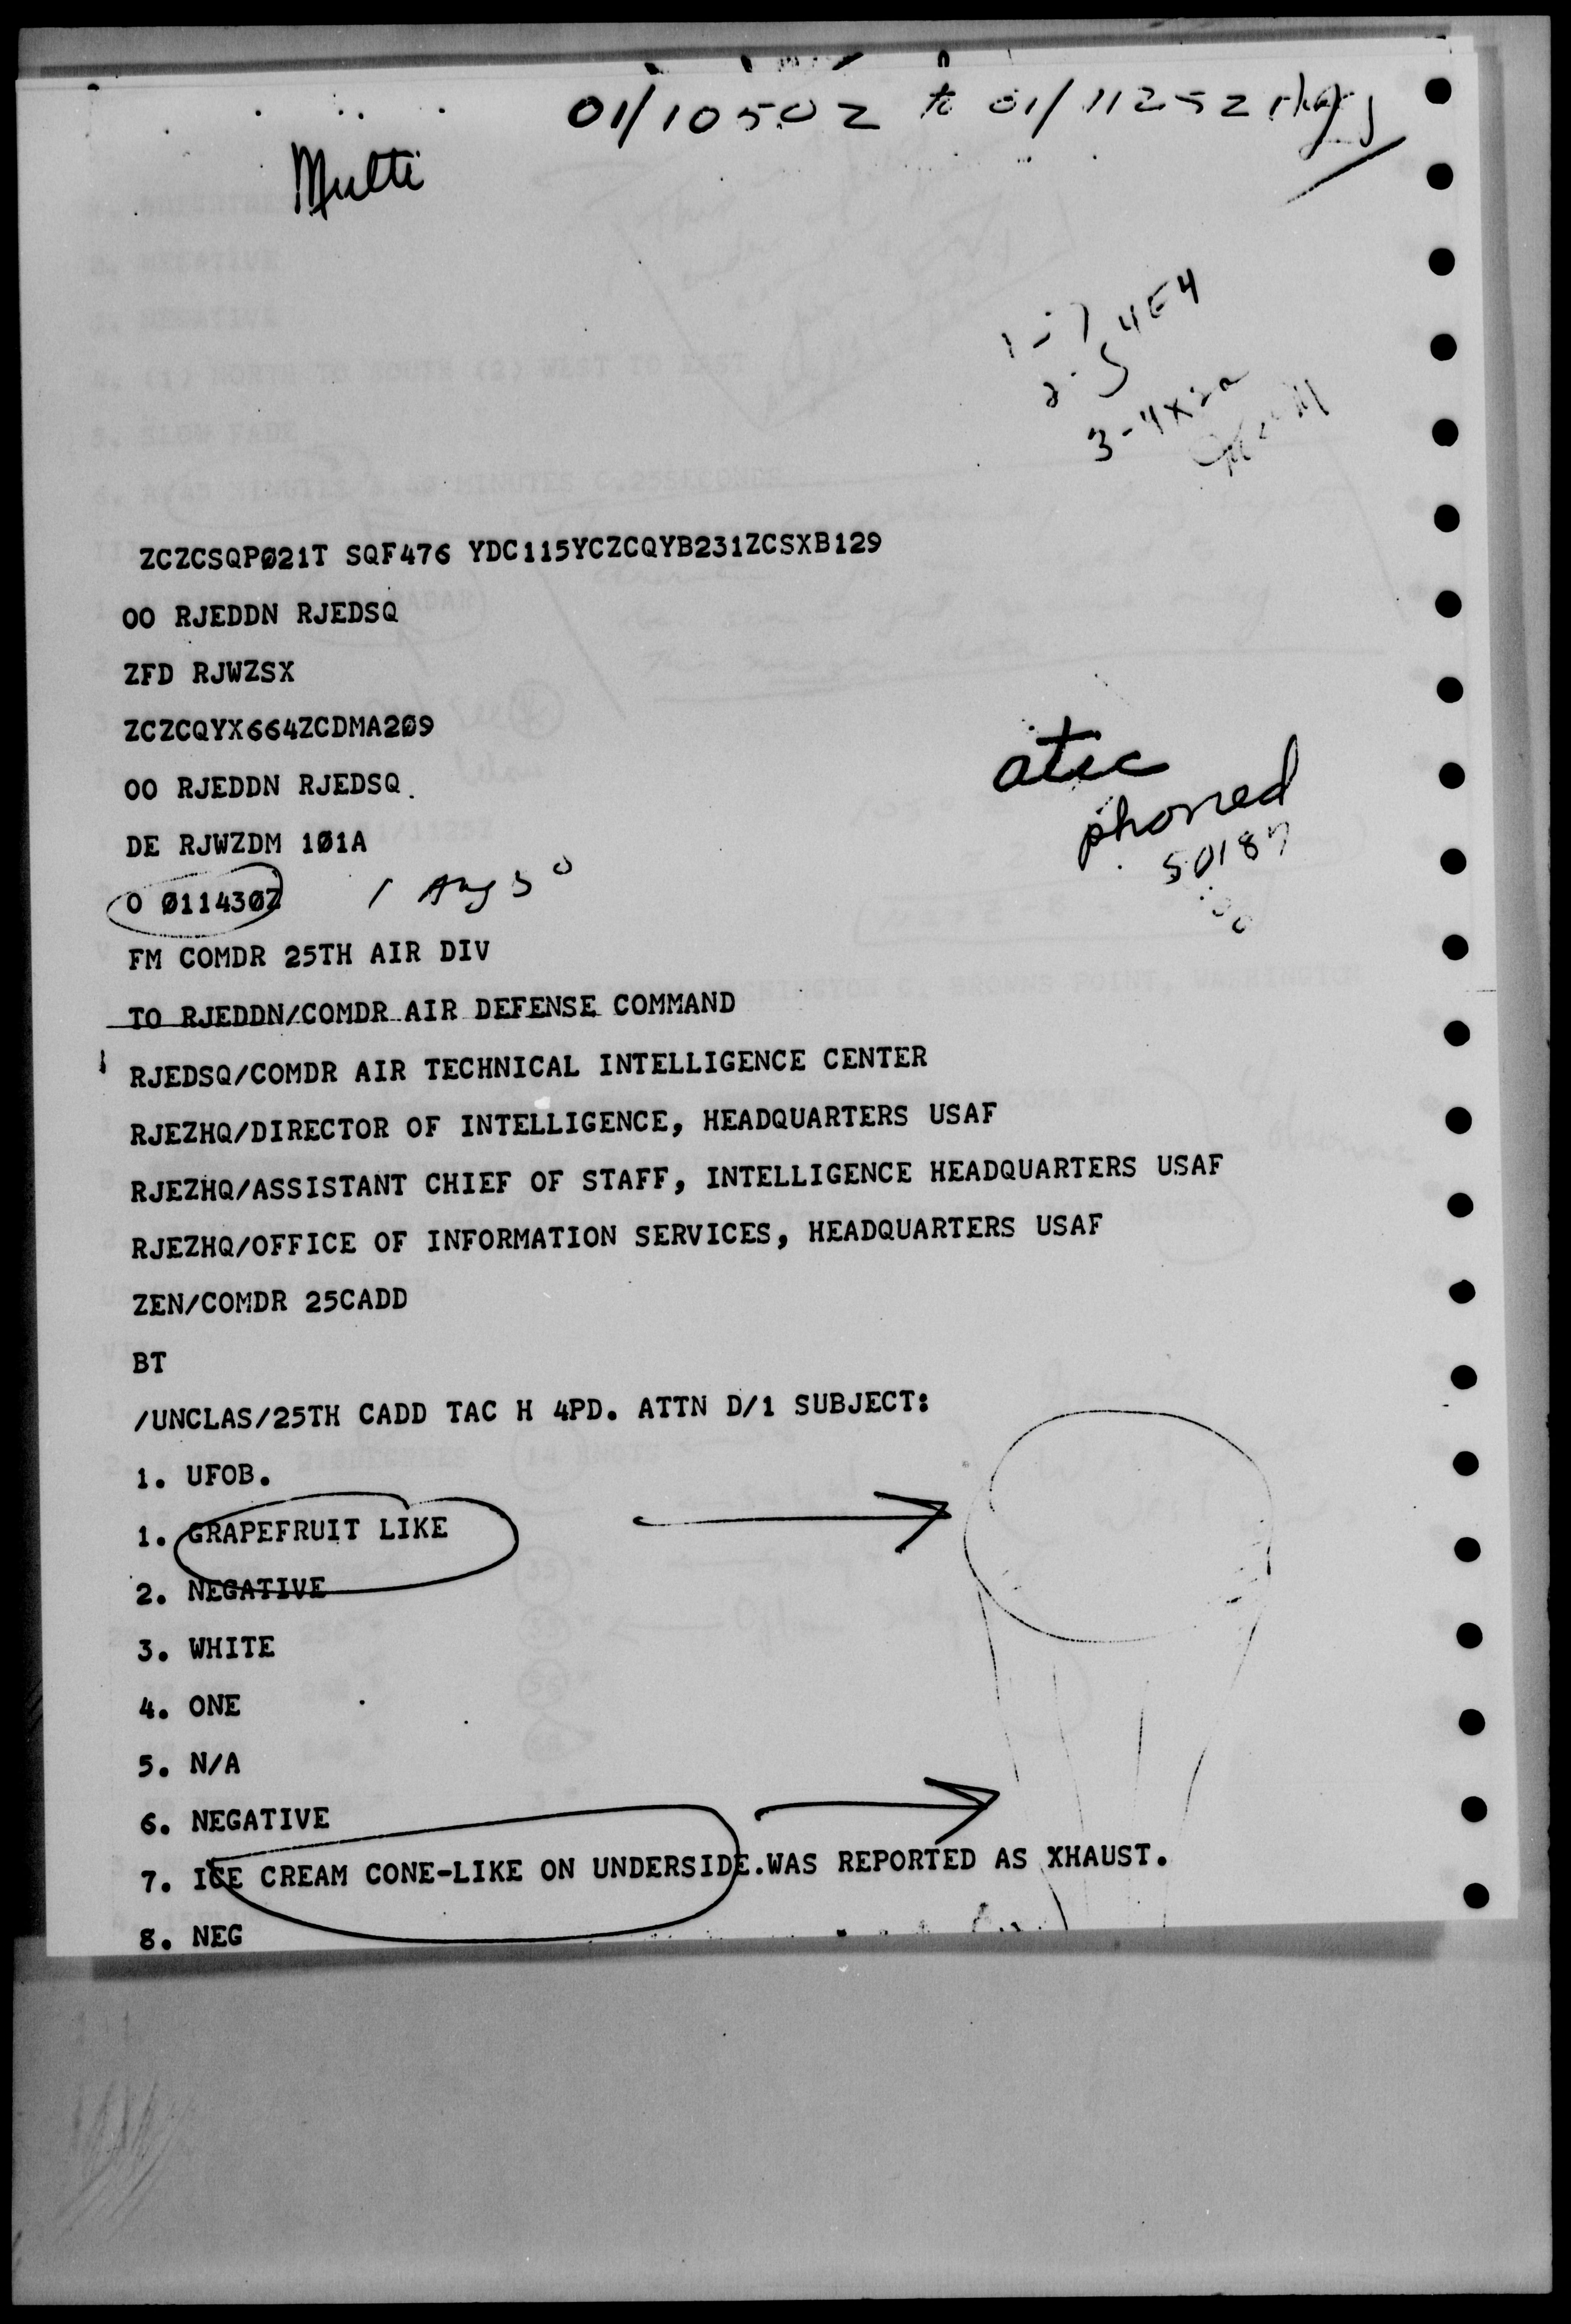 01/1050Z to 01/1125Z
Multi
1-7
2-5 4E4
3-4X
ZCZCSQPØ21T SQF476 YDC115YCZCQYB231ZCSXB129
OO RJEDDN RJEDSQ
ZFD RJWZSX
ZCZCQYX664ZCDMA2Ø9
OO RJEDDN RJEDSQ.
atic
phoned
50187
DE RJWZDM 1Ø1A
O Ø1143ØZ 1 Aug
FM COMDR 25TH AIR DIV
TO RJEDDN/COMDR AIR DEFENSE COMMAND
RJEDSQ/COMDR AIR TECHNICAL INTELLIGENCE CENTER
RJEZHQ/DIRECTOR OF INTELLIGENCE, HEADQUARTERS USAF
RJEZHQ/ASSISTANT CHIEF OF STAFF, INTELLIGENCE HEADQUARTERS USAF
RJEZHQ/OFFICE OF INFORMATION SERVICES, HEADQUARTERS USAF
ZEN/COMDR 25CADD
BT
/UNCLAS/25TH CADD TAC H 4PD. ATTN D/1 SUBJECT:
1. UFOB.
1. GRAPEFRUIT LIKE
2. NEGATIVE
3. WHITE
4. ONE
5. N/A
6. NEGATIVE
7. ICE CREAM CONE-LIKE ON UNDERSIDE.WAS REPORTED AS XHAUST.
8. NEG